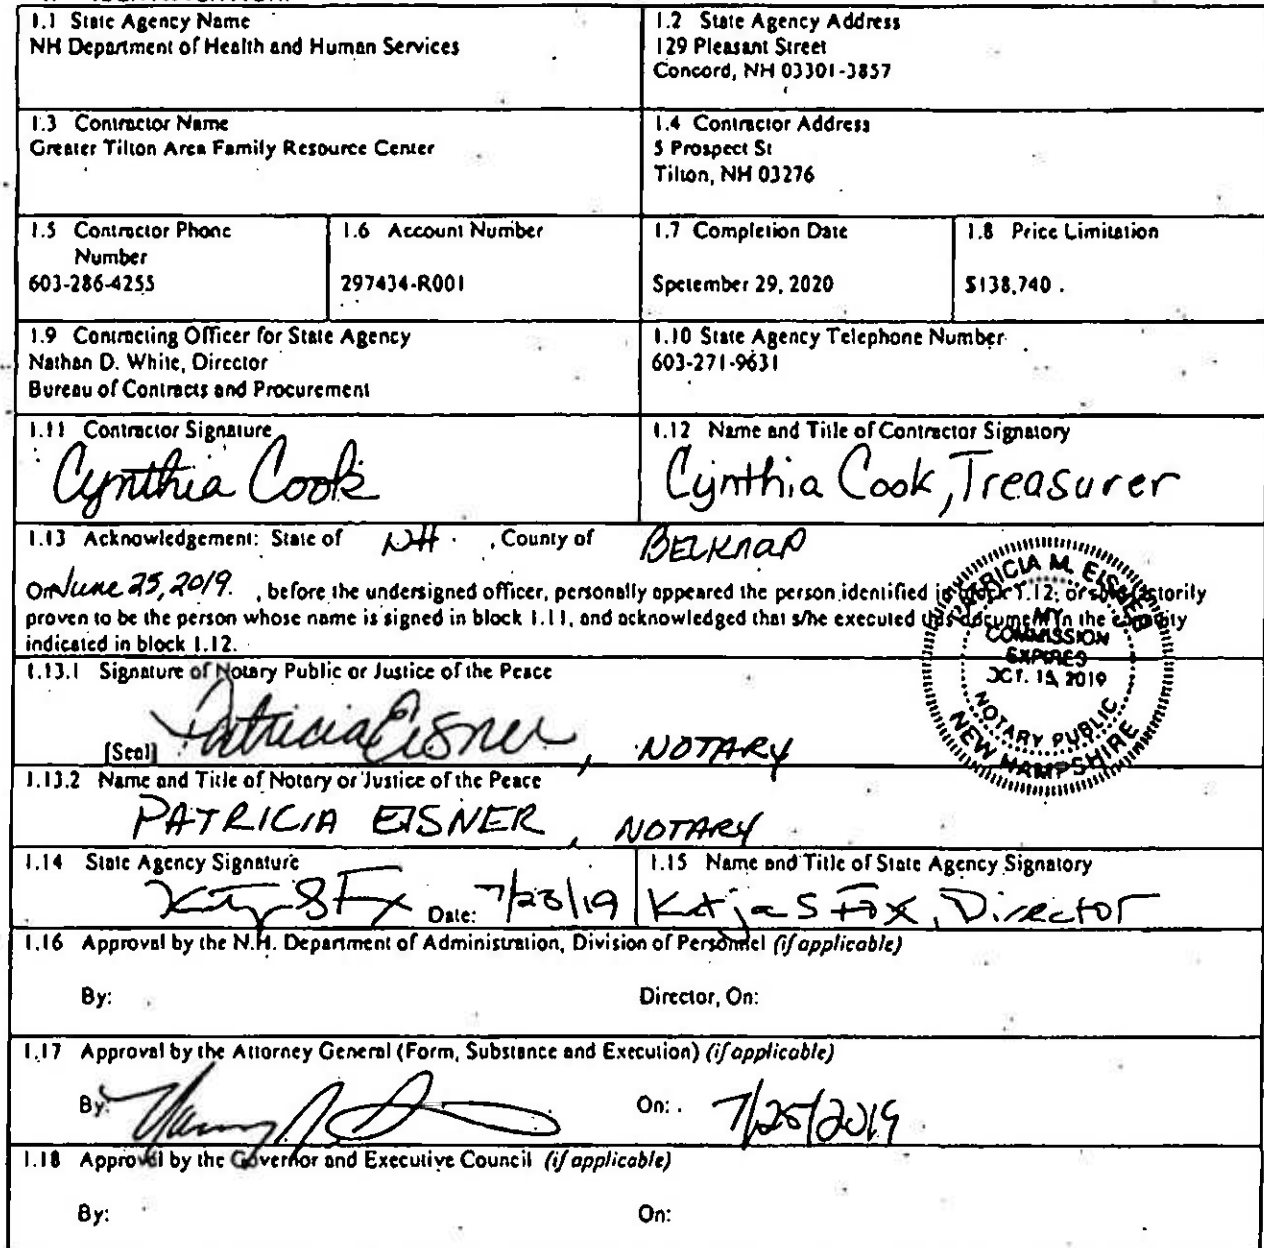 1.1 State Agency Name
NH Department of Health and Human Services
1.2 State Agency Address
129 Pleasant Street
Concord, NH 03301-3857
1.3 Contractor Name
Greater Tilton Area Family Resource Center
1.4 Contractor Address
5 Prospect St
Tilton, NH 03276
1.5 Contractor Phone
Number
603-286-4255
1.6 Account Number
297434-R001
1.7 Completion Date
Spetember 29, 2020
1.8 Price Limitation
$138,740.
1.9 Contracting Officer for State Agency
Nathan D. White, Director
Bureau of Contracts and Procurement
1.10 State Agency Telephone Number
603-271-9631
1.11 Contractor Signature
Cynthia Cook
1.12 Name and Title of Contractor Signatory
Cynthia Cook, Treasurer
1.13 Acknowledgement: State of NH , County of BELKNAP
On June 25, 2019. , before the undersigned officer, personally appeared the person identified in block 1.12, or
proven to be the person whose name is signed in block 1.11, and acknowledged that s/he executed this document in the
indicated in block 1.12.
PATRICIA M. EISNER
MY
COMMISSION
EXPIRES
OCT. 15, 2019
NOTARY PUBLIC
NEW HAMPSHIRE
1.13.1 Signature of Notary Public or Justice of the Peace
[Seal] Patricia Eisner, NOTARY
1.13.2 Name and Title of Notary or Justice of the Peace
PATRICIA EISNER, NOTARY
1.14 State Agency Signature
Date: 7/23/19
1.15 Name and Title of State Agency Signatory
Katja S Fox, Director
1.16 Approval by the N.H. Department of Administration, Division of Personnel (if applicable)
By: Director, On:
1.17 Approval by the Attorney General (Form, Substance and Execution) (if applicable)
By: On: 7/25/2019
1.18 Approval by the Governor and Executive Council (if applicable)
By: On: